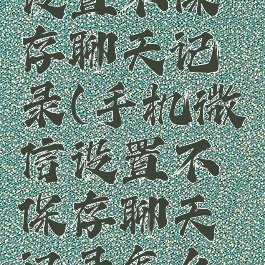 设置不保
存聊天记
录(手机微
信设置不
保存聊天
记录怎么